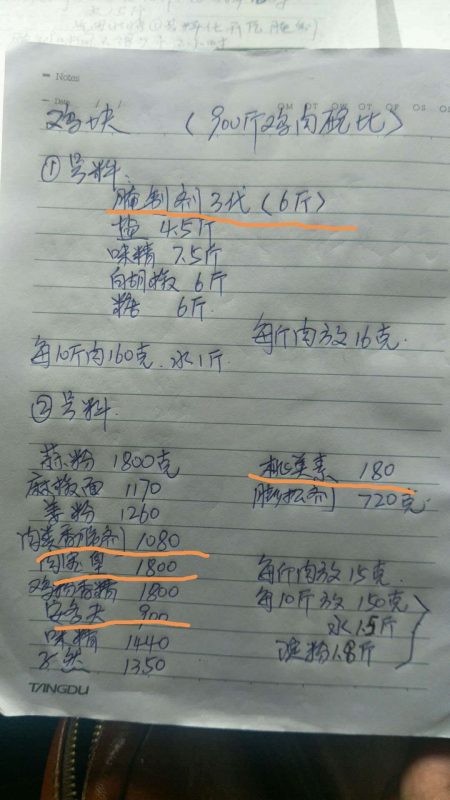 Notes
Date / /
鸡块 (900斤鸡肉配比)
①号料.
腌制剂 3代 (6斤)
盐 4.5斤
味精 7.5斤
白胡椒 6斤
糖 6斤
每斤肉放16克.
每10斤肉160克. 水1斤.
②号料.
蒜粉 1800克
麻椒面 1170
姜粉 1260
1080
1800
1800
900
味精 1440
1350
180
膨松剂 720克.
每斤肉放15克.
每10斤放150克
水1.5斤
淀粉1.8斤
TANGDU